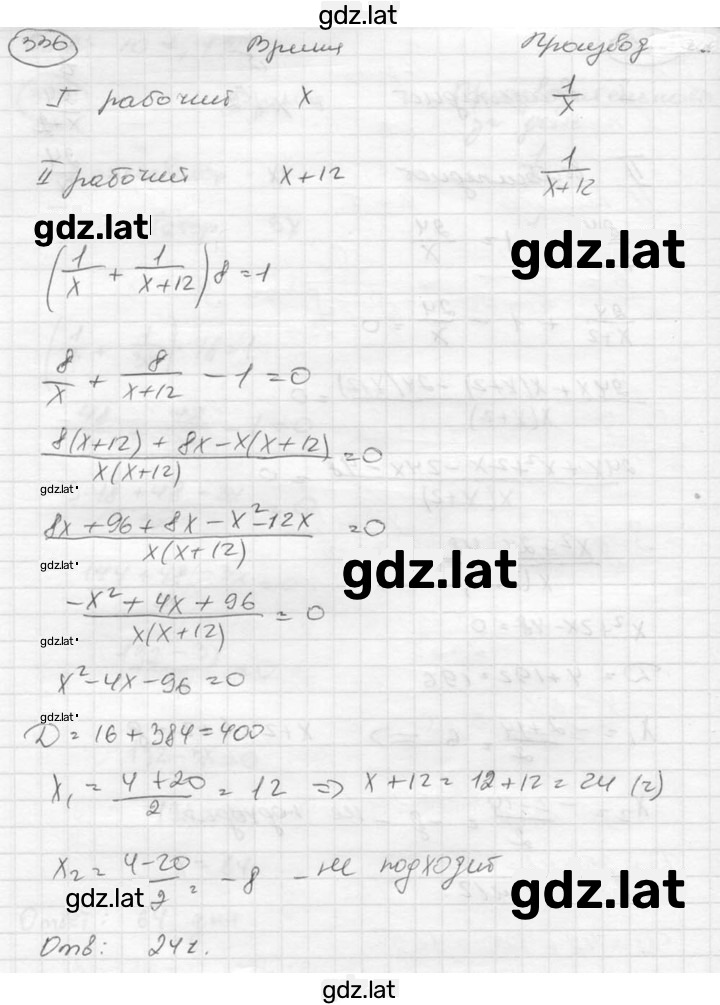 gdz.lat
336 Время Производ
I рабочий x 1/x
II рабочий x+12 1/(x+12)
gdz.lat
gdz.lat
(1/x + 1/(x+12)) 8 = 1
8/x + 8/(x+12) - 1 = 0
(8(x+12) + 8x - x(x+12))/(x(x+12)) = 0
gdz.lat
(8x + 96 + 8x - x² - 12x)/(x(x+12)) = 0
gdz.lat
gdz.lat
(-x² + 4x + 96)/(x(x+12)) = 0
gdz.lat
x² - 4x - 96 = 0
gdz.lat
D = 16 + 384 = 400
x₁ = (4+20)/2 = 12 ⇒ x+12 = 12+12 = 24 (ч)
x₂ = (4-20)/2 = -8 - не подходит
gdz.lat
gdz.lat
Отв: 24ч.
gdz.lat